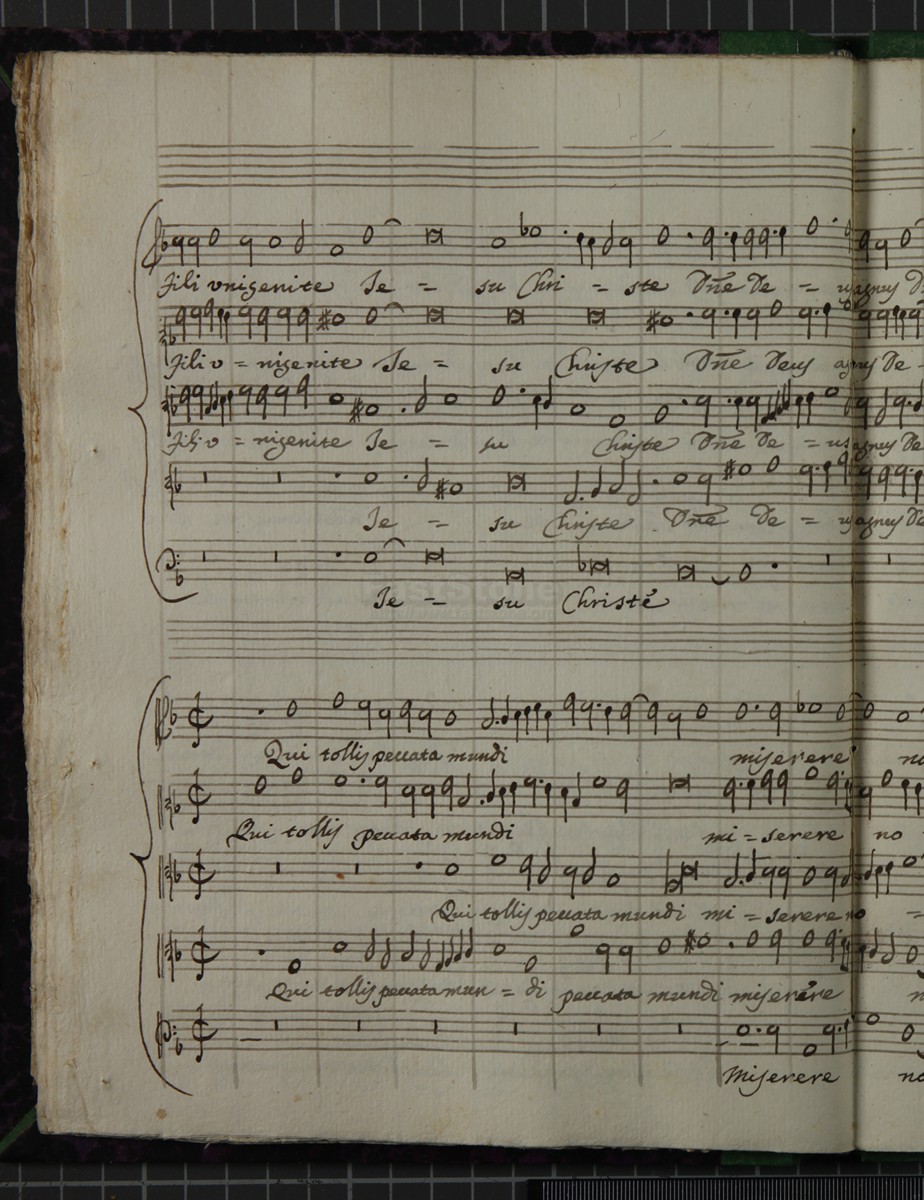 Fili vnigenite Ie = su Chri = ste Dñe De = us agnus D
Fili v = nigenite Ie = su Christe Dñe Deus agnus De =
Fili v = nigenite Ie = su Christe Dñe De = us agnus De
Ie = su Christe Dñe De = us agnus De
Ie = su Christe
Qui tollis peccata mundi miserere no
Qui tollis peccata mundi mi = serere no
Qui tollis peccata mundi mi = serere no =
Qui tollis peccata mun = di peccata mundi miserere n
Miserere no